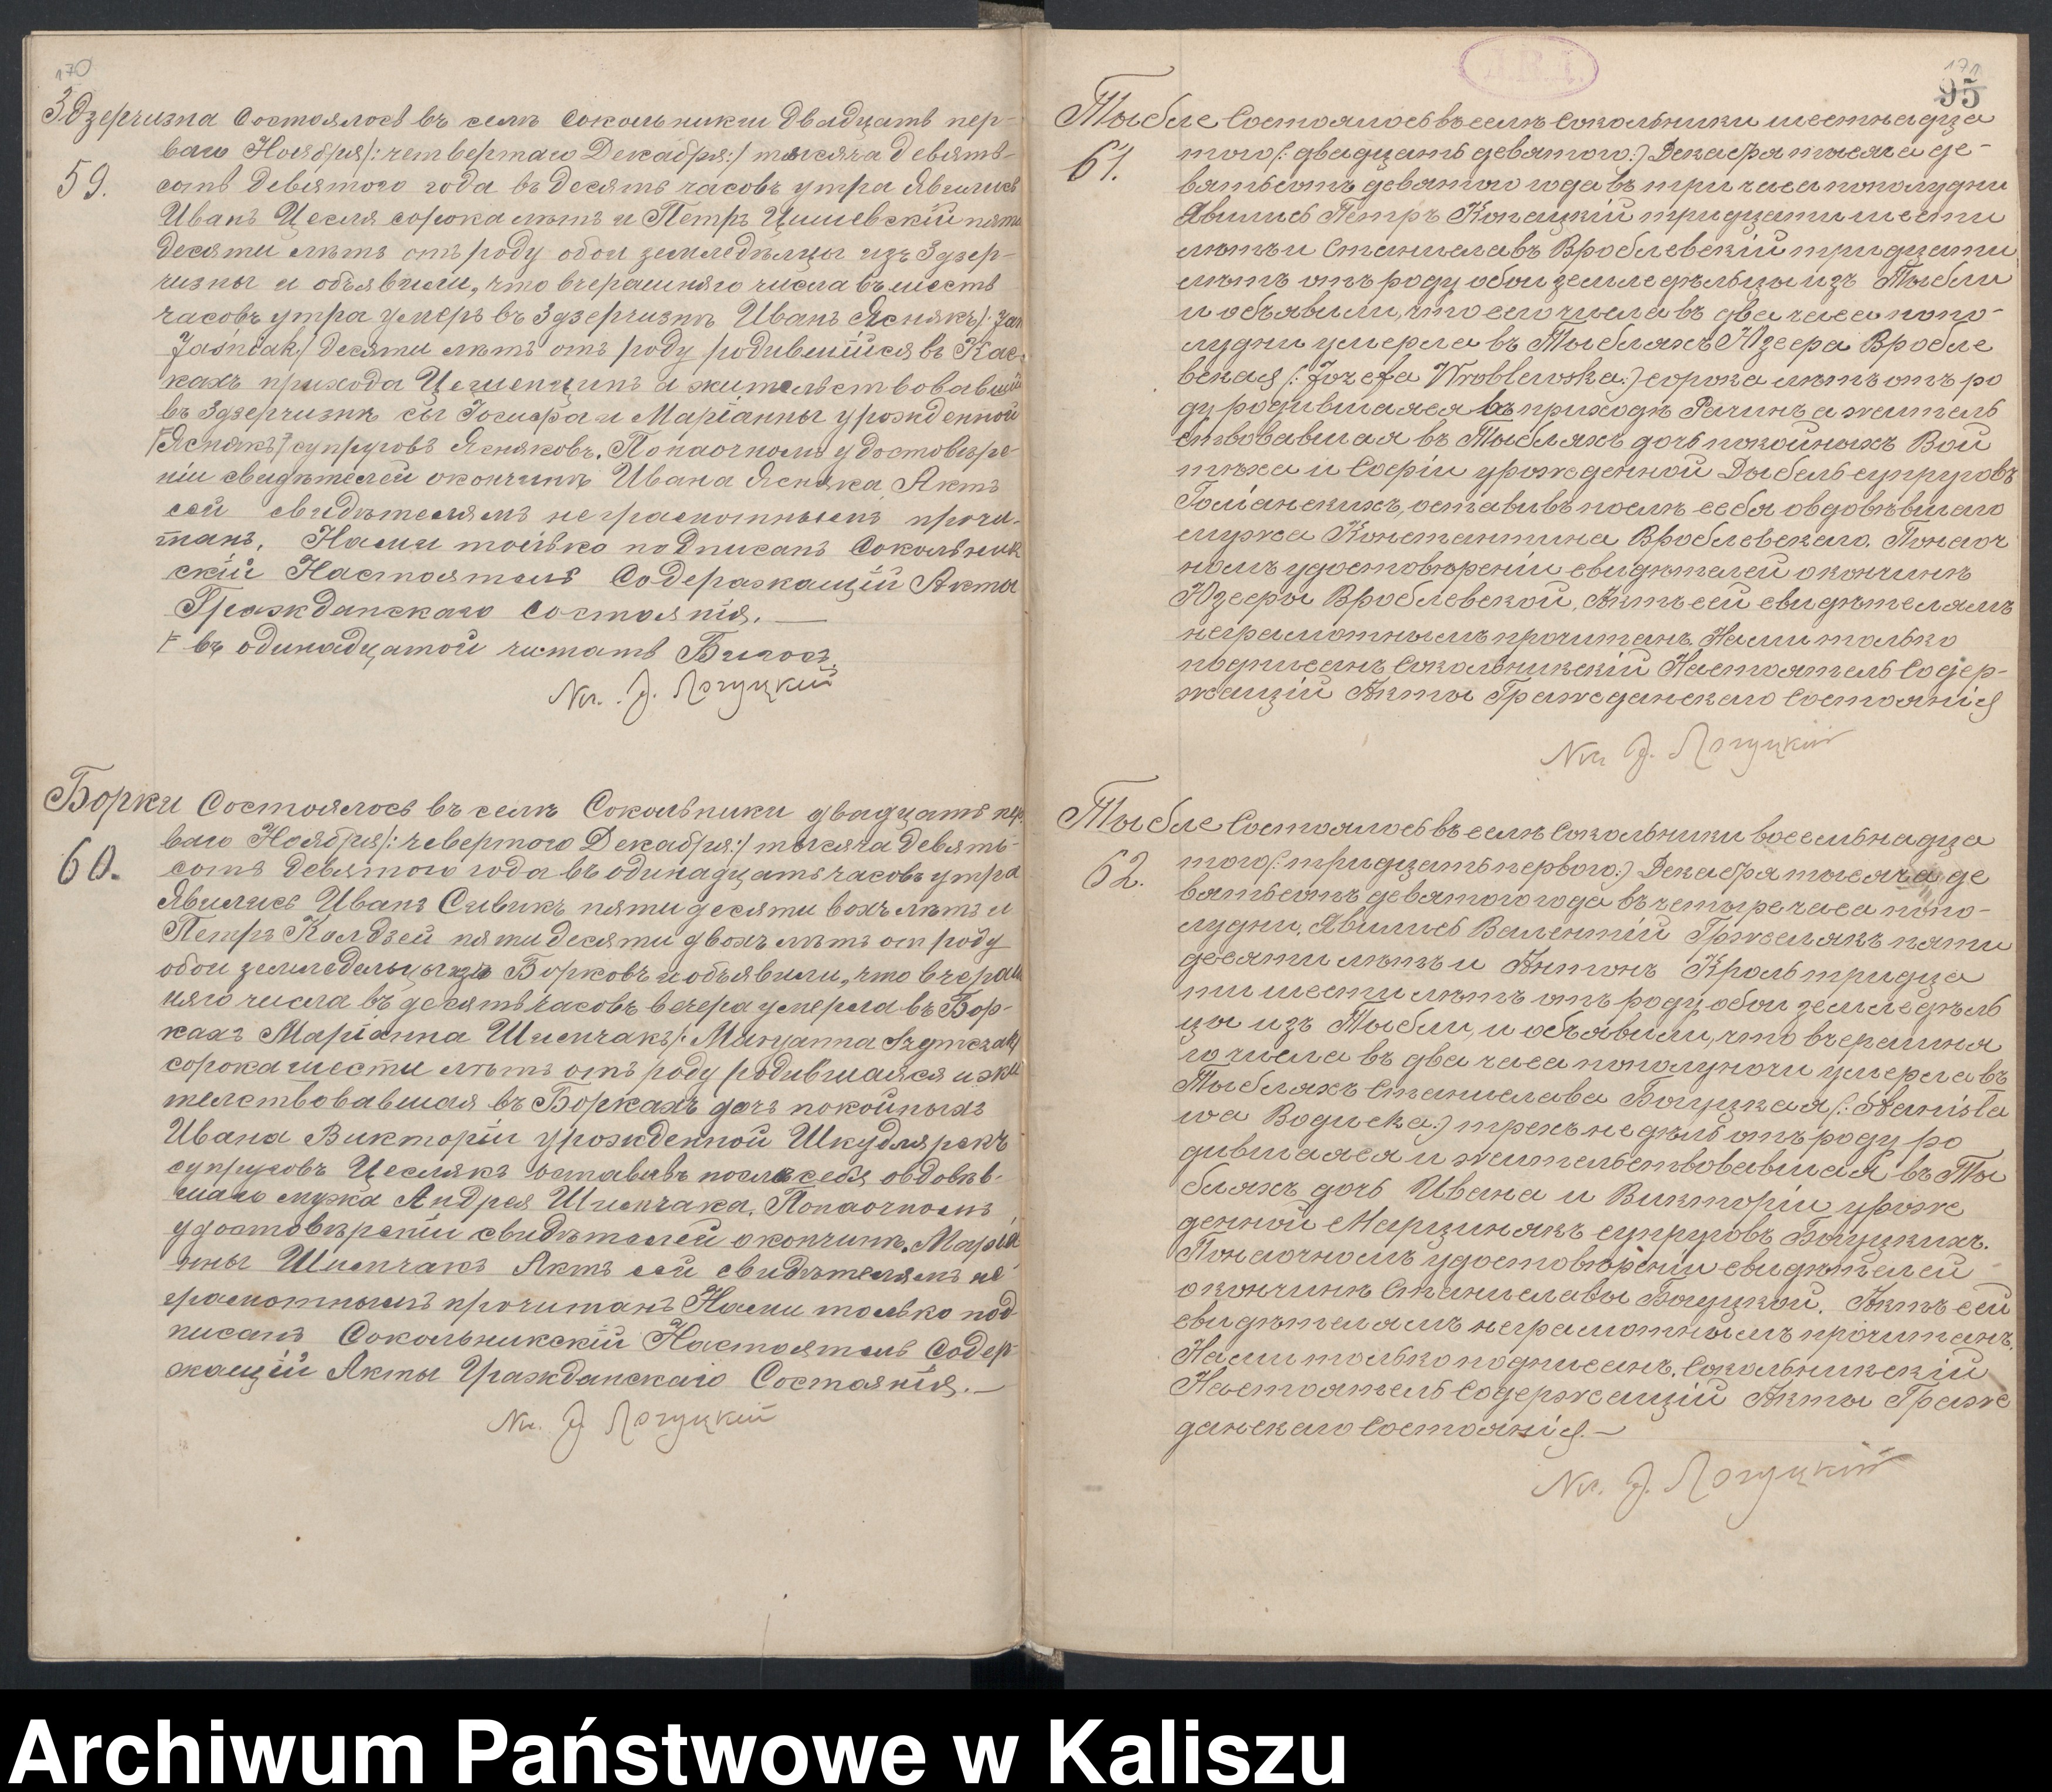 170
Здзерчизна Состоялось въ селѣ Сокольники двадцать пер-
ваго Ноября/: четвертаго Декабря:/ тысяча девять-
59.
сотъ девятого года въ десять часовъ утра Явились
Иванъ Цесля сорока лѣтъ и Петръ Цишевскій пяти
десяти лѣтъ отъ роду обои земледѣлцы изъ Здзер-
чизны и объявили, что вчерашняго числа въ шесть
часовъ утра умеръ въ Здзерчизнѣ Иванъ Яснякъ/: Jan
Jaśniak/ десяти лѣтъ отъ роду родившійся въ Кас-
кахъ прихода а жительствовавшій
въ Здзерчизнѣ сы Іосифа и Маріанны урожденной
⊢Яснякъ⊣ супруговъ Ясняковъ. Понаочномъ удостовѣре-
ніи свидѣтелей окончинѣ Ивана Ясняка, Актъ
сей свидѣтелямъ неграмотнымъ прочи-
танъ. Нами только подписанъ Сокольник
скій Настоятель Содержащій Акты
Гражданскаго Состоянія. —
⊢ въ одинадцатой читать
Кс. J. Логуцкий
Борки Состоялось въ селѣ Сокольники двадцать пер-
ваго Ноября/: чевертого Декабря:/ тысяча девять-
60.
сотъ девятого года въ одинадцать часовъ утра
Явились Иванъ Сивикъ пятидесяти вохъ лѣтъ и
Петръ Колдзей пятидесяти двохъ лѣтъ от роду
обои земледельцы изъ Борковъ и объявили, что вчераш
няго числа въ десять часовъ вечера умерла въ Бор-
кахъ Маріанна Шимчакъ/: Maryanna Szymczak/
сорока шести лѣтъ отъ роду родившаяся и жи
телствовавшая въ Боркахъ дочь покойныхъ
Ивана Викторіи урожденной Шкудлярекъ
супруговъ Цеслякъ оставивъ послѣ себя овдовѣв-
шаго мужа Андрея Шимчака. Понаочномъ
удостовѣреніи свидѣтелей окончинѣ Маріа
нны Шимчакъ Актъ сей свидѣтелямъ не
грамотнымъ прочитанъ Нами только под
писанъ Сокольникскій Настоятель Содер-
жащій Акты Гражданскаго Состоянія. —
Кс. J. Логуцкий
171
95
Тыбле Состоялось въ селѣ Сокольники шестнадца
61.
того/: двадцать девятого:) Декабря тысяча де-
вятьсотъ девятого года въ три часа пополудни
Явились Петръ Копацкій тридцати шести
лѣтъ и Станиславъ Вроблевскій тридцати
лѣтъ отъ роду обои земледѣльцы изъ Тыбли
и объявили, что сего числа въ два часа попо-
лудни умерла въ Тыбляхъ Юзефа Вробле
вская /: Józefa Wroblewska:) сорока лѣтъ отъ ро
ду родившаяся въ приходѣ Рачинъ а житель
ствовавшая въ Тыбляхъ дочь покойныхъ Вой
тѣха и Софіи урожденной Дыбель супруговъ
Голанскихъ, оставивъ послѣ себя овдовѣвшаго
мужа Константина Вроблевскаго. Понаоч
номъ удостовѣреніи свидѣтелей окончинѣ
Юзефы Вроблевской, Актъ сей свидѣтелямъ
неграмотнымъ прочитанъ. Нами только
подписанъ Сокольникскій Настоятель Содер-
жащій Акты Гражданскаго Состоянія
Кс. J. Логуцкий
Тыбле Состоялось въ селѣ Сокольники восемьнадца
62.
того/: тридцать первого:) Декабря тысяча де
вятьсотъ девятого года въ четыре часа попо-
лудни, Явились Валентій Гржелякъ пяти
десяти лѣтъ и Антонъ Кроль тридца
ти шести лѣтъ отъ роду обои земледѣль
цы изъ Тыбли, и объявили, что вчерашня
го числа въ два часа пополуночи умерла въ
Тыбляхъ Станислава Богуцкая/: Stanisła
wa Bogucka:) трехъ недѣль отъ роду ро
дившаяся и жительствовавшая въ Ты
бляхъ дочь Ивана и Викторіи урож
денной Марцинякъ супруговъ Богуцкихъ.
Понаочномъ удостовѣреніи свидѣтелей
окончинѣ Станиславы Богуцкой. Актъ сей
свидѣтелямъ неграмотнымъ прочитанъ.
Нами только подписанъ. Сокольникскій
Настоятель Содержащій Акты Граж
данскаго Состоянія. —
Кс. J. Логуцкий
Archiwum Państwowe w Kaliszu